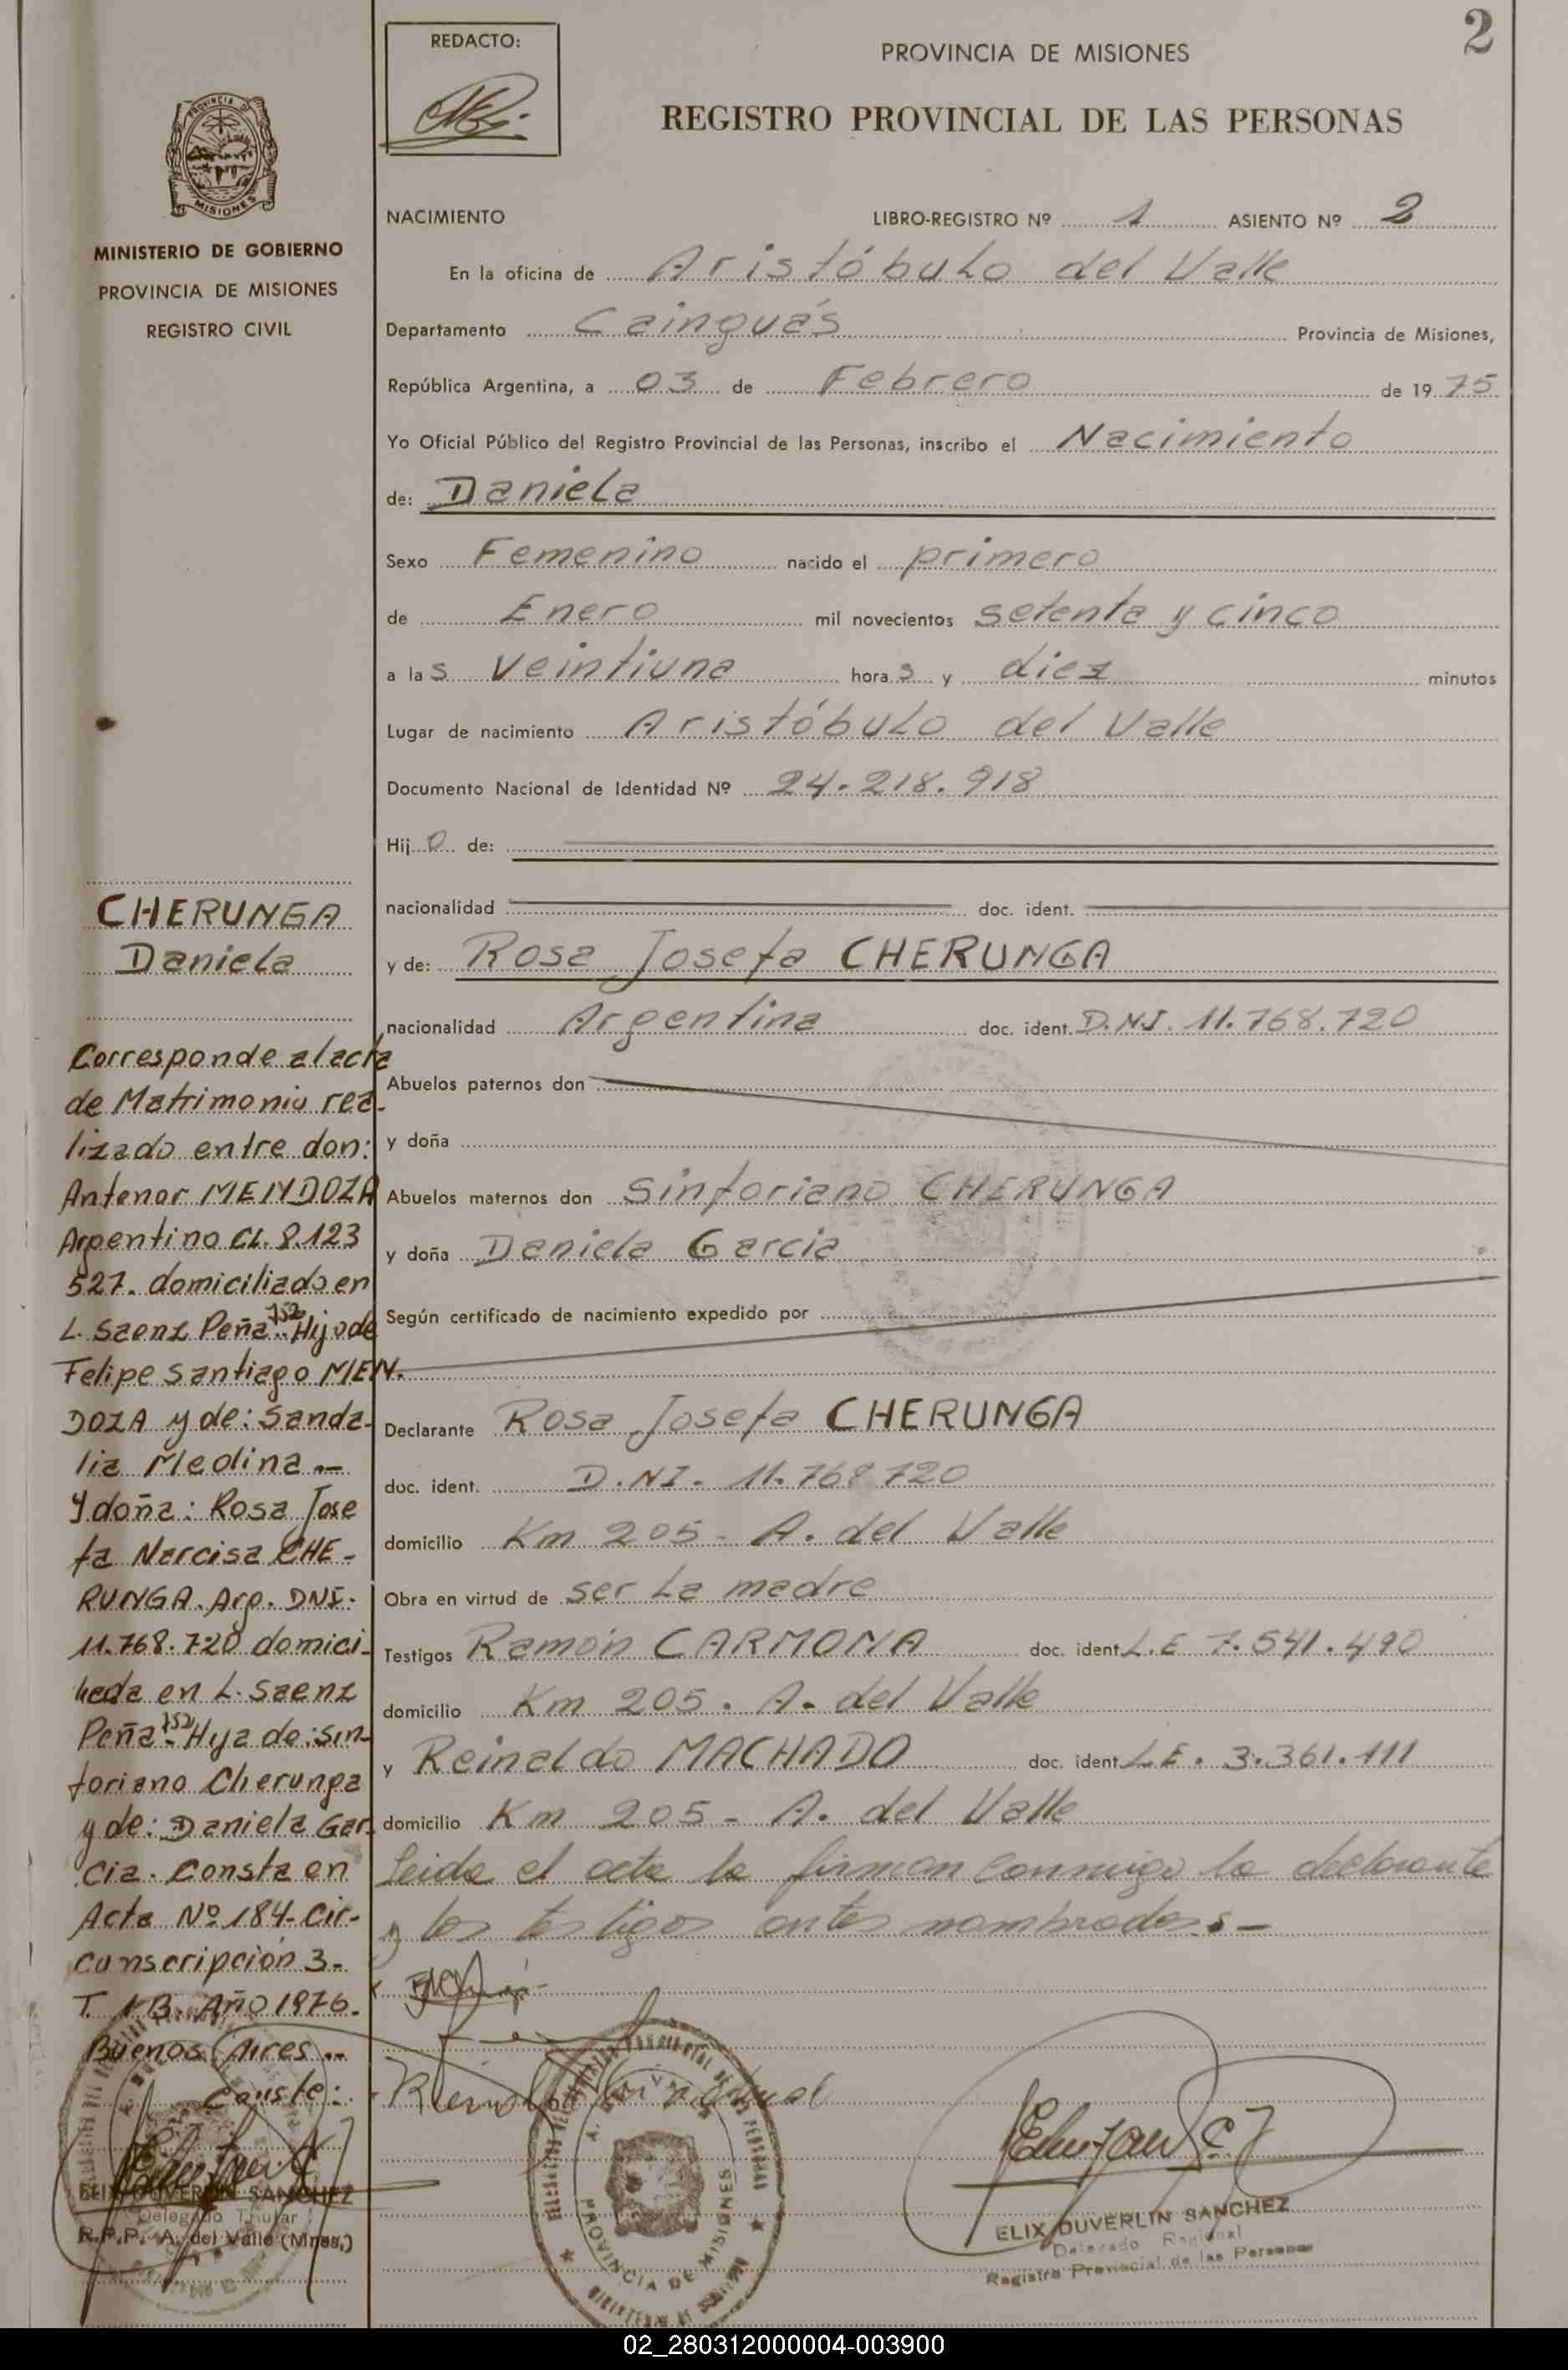 2
REDACTO:
PROVINCIA DE MISIONES
REGISTRO PROVINCIAL DE LAS PERSONAS
MISIONES
MINISTERIO DE GOBIERNO
PROVINCIA DE MISIONES
REGISTRO CIVIL
NACIMIENTO LIBRO-REGISTRO Nº 1 ASIENTO Nº 2
En la oficina de Aristóbulo del Valle
Departamento Cainguás Provincia de Misiones,
República Argentina, a 03 de Febrero de 1975
Yo Oficial Público del Registro Provincial de las Personas, inscribo el Nacimiento
de: Daniela
Sexo Femenino nacido el primero
de Enero mil novecientos setenta y cinco
a las veintiuna horas y diez minutos
Lugar de nacimiento Aristóbulo del Valle
Documento Nacional de Identidad Nº 24.218.918
Hijo de:
nacionalidad doc. ident.
y de: Rosa Josefa CHERUNGA
nacionalidad Argentina doc. ident. D.N.I. 11.768.720
Abuelos paternos don
y doña
Abuelos maternos don Sinforiano CHERUNGA
y doña Daniela Garcia
Según certificado de nacimiento expedido por
Declarante Rosa Josefa CHERUNGA
doc. ident. D.NI. 11.768.720
domicilio Km 205 - A. del Valle
Obra en virtud de ser la madre
Testigos Ramón CARMONA doc. ident. L.E 7.541.490
domicilio Km 205. A. del Valle
y Reinaldo MACHADO doc. ident. L.E. 3.361.111
domicilio Km 205 - A. del Valle
Leida el acta la firman conmigo la declarante
y los testigos antes nombrados.-
CHERUNGA
Daniela
Corresponde al acta
de Matrimonio rea-
lizado entre don:
Antenor MENDOZA
Argentino CI. 8.123
527. domiciliado en
L. Saenz Peña 752 Hijo de
Felipe Santiago MEN.
DOZA y de: Sanda-
lia Medina.-
Y doña: Rosa Jose
fa Narcisa CHE-
RUNGA. Arg. DNI.
11.768.720 domici-
liada en L. Saenz
Peña 752 Hija de: Sin-
foriano Cherunga
y de: Daniela Gar-
cia. Consta en
Acta Nº 184- Cir-
cunscripción 3-
T. 1 B. Año 1976.
Buenos Aires.-
Conste:
ELIX DUVERLIN SANCHEZ
Delegado Titular
R.P.P. A. del Valle (Mnes.)
PROVINCIA DE MISIONES
ELIX DUVERLIN SANCHEZ
Delegado Regional
Registro Provincial de las Personas
02_280312000004-003900